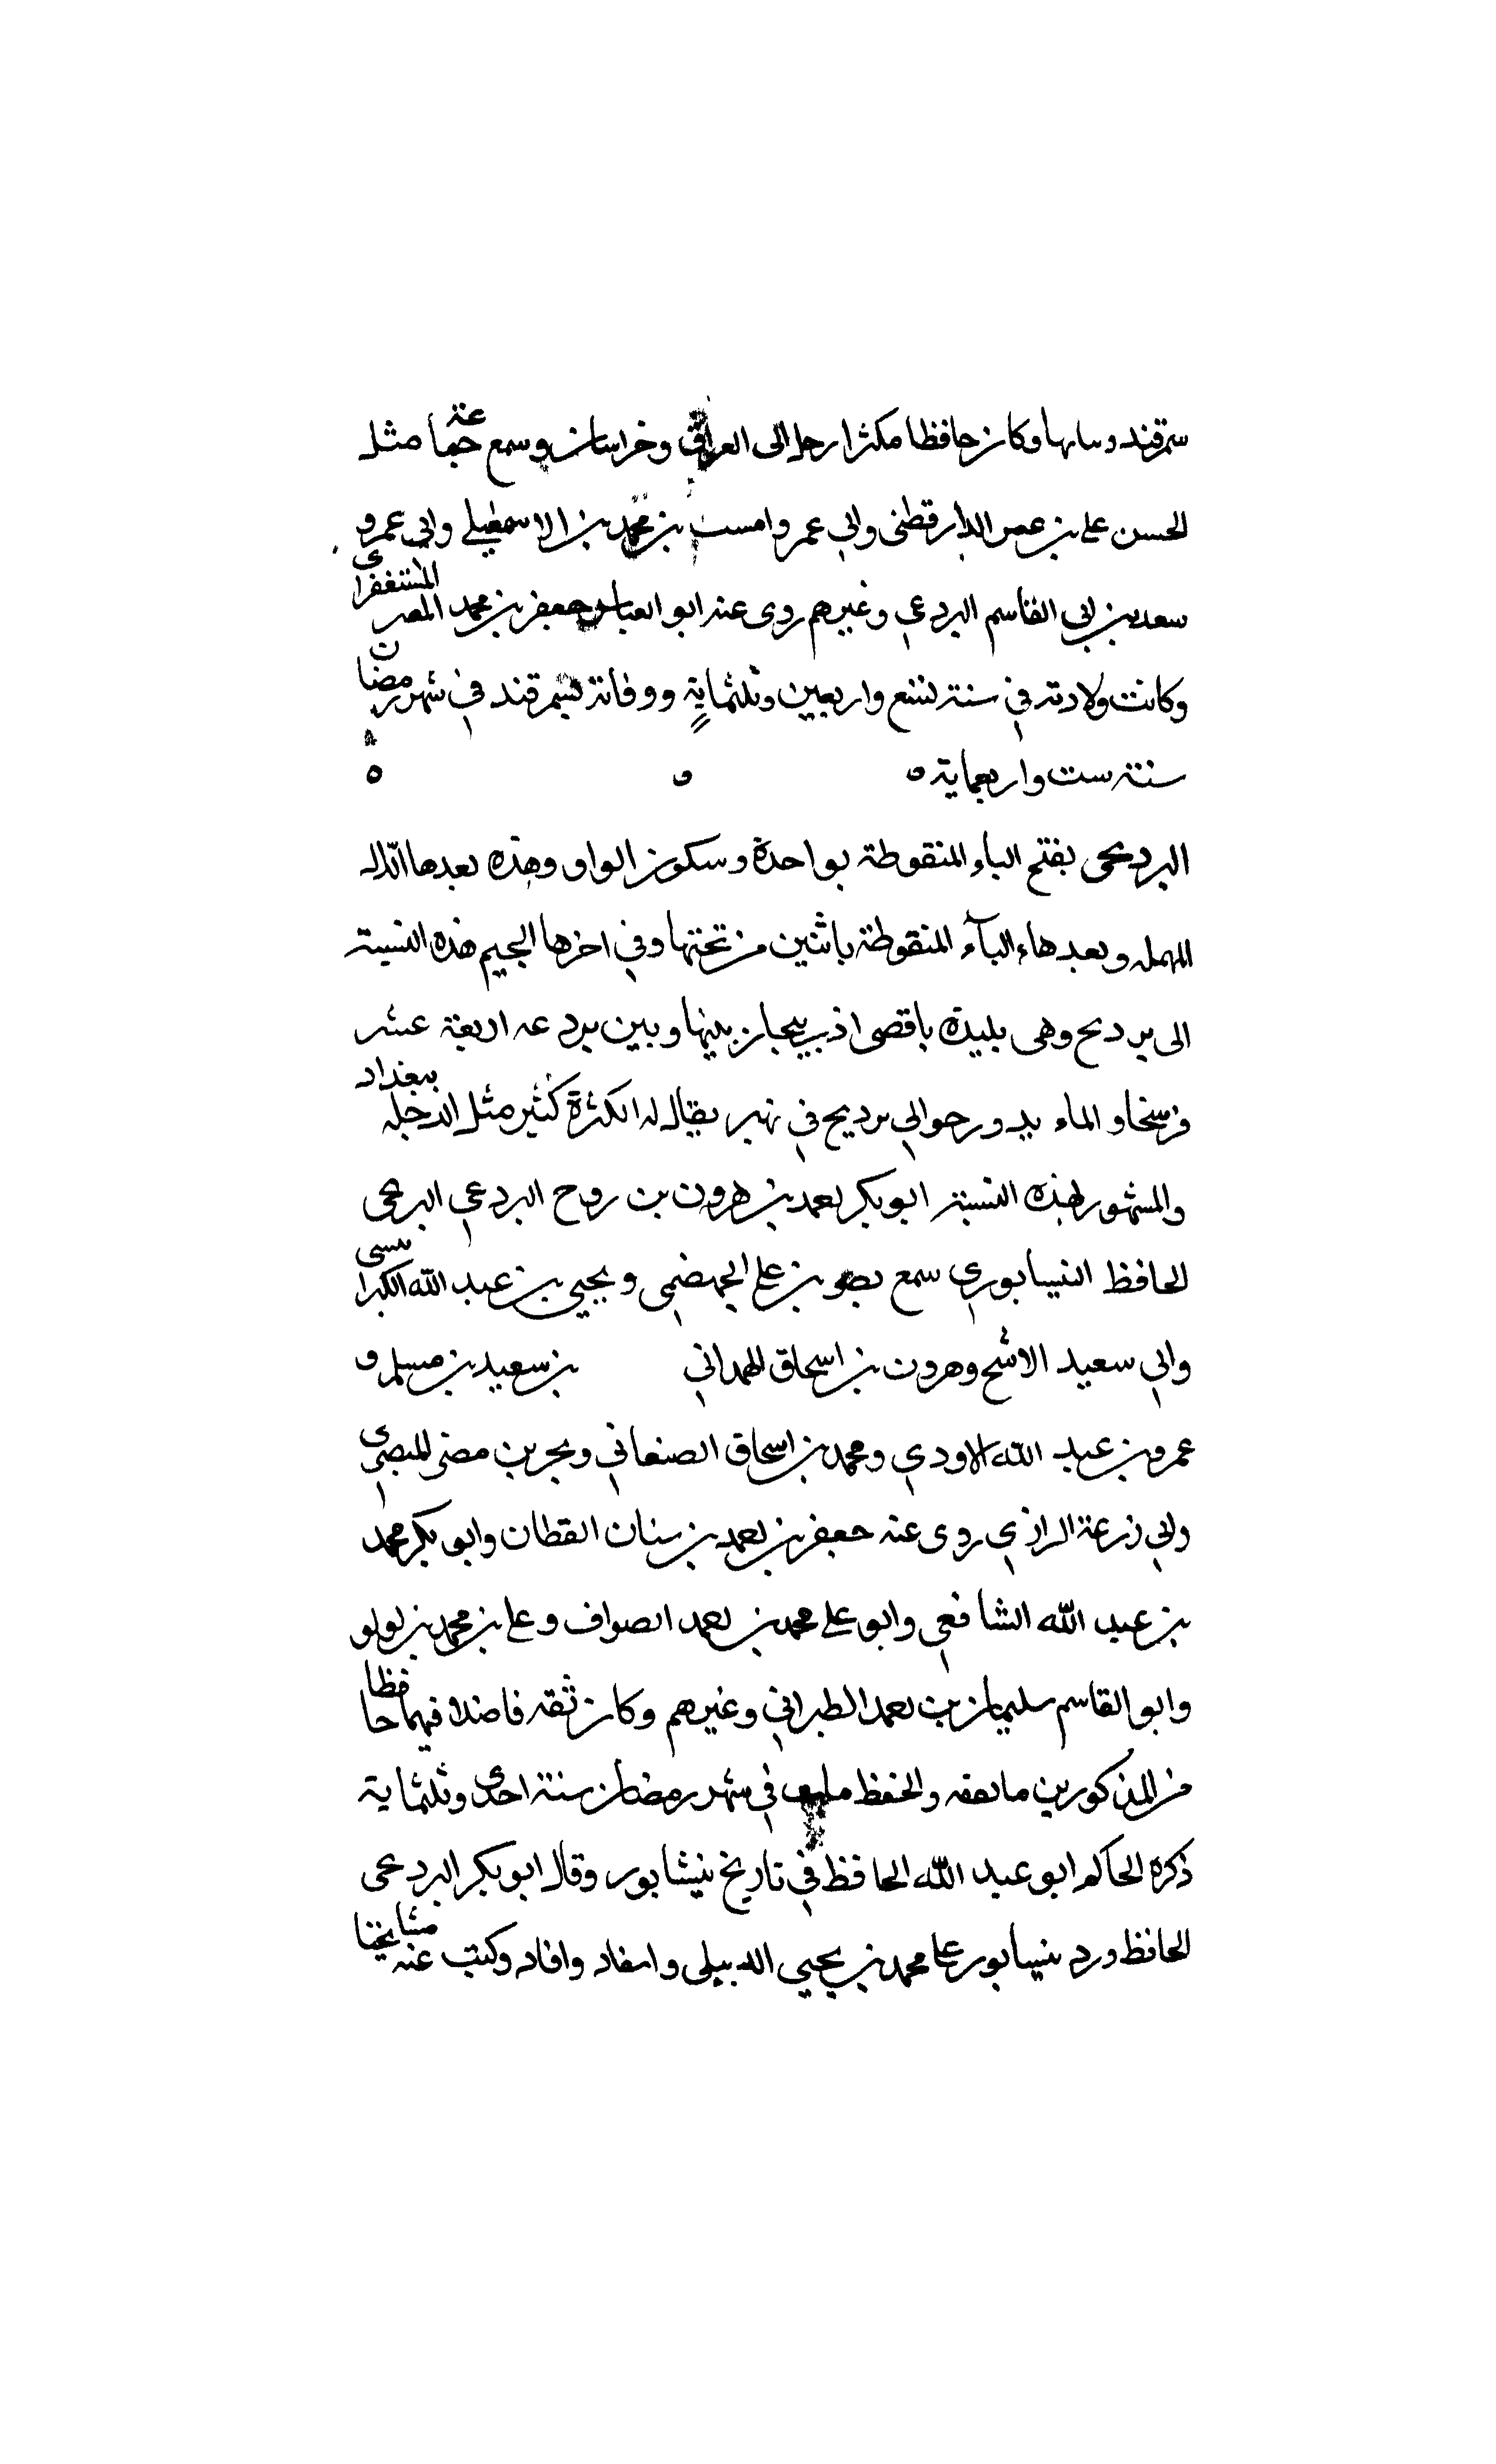 سمرقند وسابها وكان حافظا مكثرا رحل الى العراق وخراسان وسمع جماعة مثل
الحسن على بن عمر الدارقطنى وابي عمرو بن محمد بن الاسمعيلي وابي عمرو
سعد بن ابي القاسم البردعي وغيرهم روى عنه ابو العباس جعفر بن محمد المستغفرى
وكانت ولادته في سنة تسع واربعين وثلثماية ووفاته بسمرقند في شهر رمضان
سنة ست واربعماية
البردىجى بفتح الباء المنقوطة بواحدة وسكون الواو وهذه بعدها الدال
المهمله وبعدها الياء المنقوطة باثنين من تحتها وفي اخرها الجيم هذه النسبة
الى برديج وهى بليدة باقصى اذربيجان بينها وبين بردعه اربعة عشر
فرسخا والماء يدور حوالي برديج في نهر يقال له الكر كثير مثل الدجلة ببغداد
والمشهور بهذه النسبة ابو بكر احمد بن هرون بن روح البردعي البرجى
الحافظ النيسابوري سمع نصر بن علي الجهضمى ويحيى بن عبد الله الكبرا
وابي سعيد الاشج وهرون بن اسحاق الهمداني بن سعيد بن مسلم و
عمرو بن عبد الله الاودي ومحمد بن اسحاق الصنعاني وبحر بن مضر المصرى
وابي زرعة الرازي روى عنه جعفر بن احمد بن سنان القطان وابو بكر محمد
بن عبد الله الشافعي وابو علي محمد بن احمد الصواف وعلى بن محمد بن لولو
وابو القاسم سليمان بن احمد الطبراني وغيرهم وكان ثقه فاضلا فهما حافظا
من المذكورين والحفظ في شهر رمضان سنة احدى وثلثماية
ذكره الحاكم ابو عبد الله الحافظ في تاريخ نيشابور وقال ابو بكر البردعى
الحافظ ورد نيسابور على محمد بن يحيى الدبيلى واستفاد وافاد وكتب عنه مشايخنا